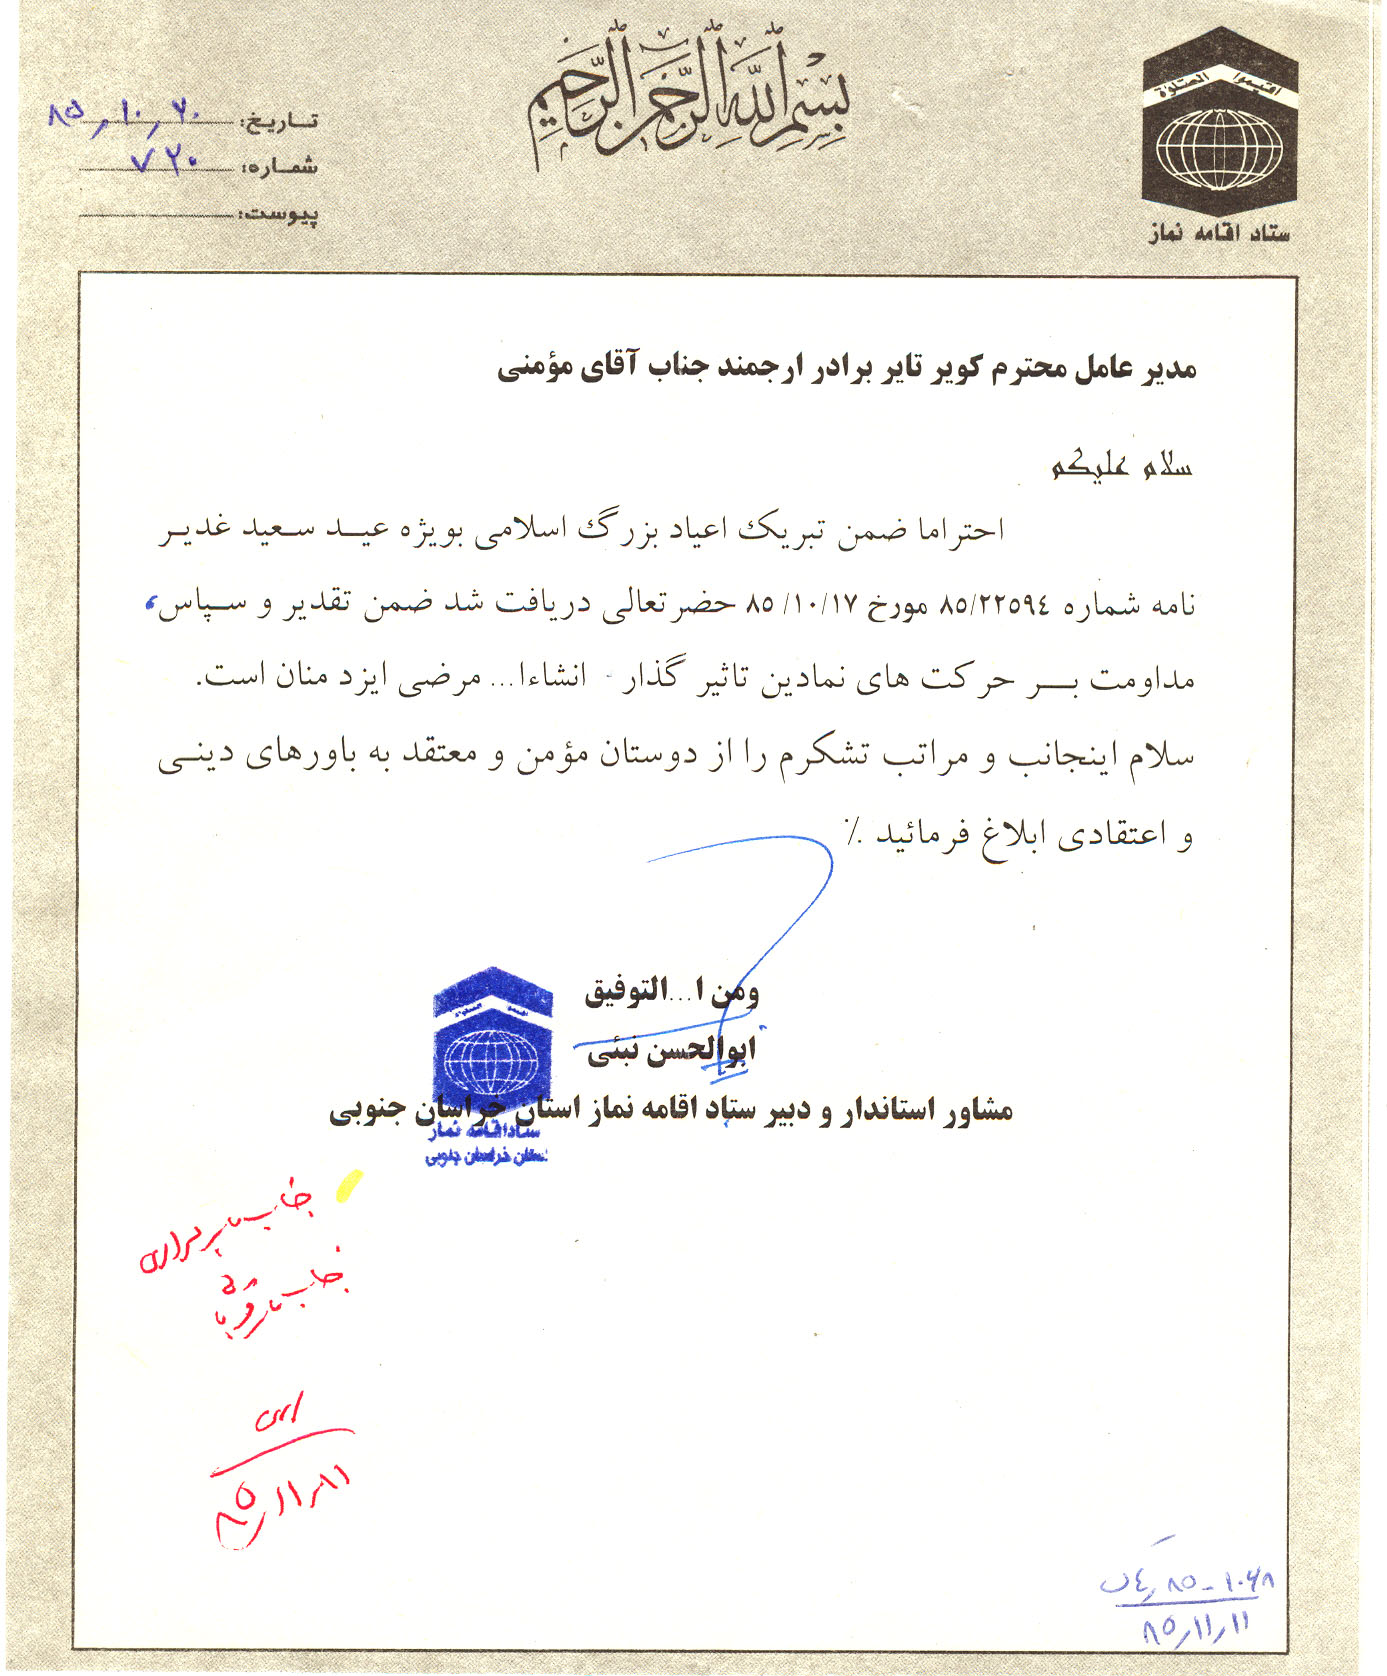 بسم الله الرحمن الرحیم
اقیموا الصلوة
ستاد اقامه نماز
تاریخ: ۸۵٫۱۰٫۲۰
شماره: ۷۲۰
پیوست:
مدیر عامل محترم کویر تایر برادر ارجمند جناب آقای مؤمنی
سلام علیکم
احتراما ضمن تبریک اعیاد بزرگ اسلامی بویژه عید سعید غدیر
نامه شماره ۸۵/۲۲۵۹۴ مورخ ۸۵/۱۰/۱۷ حضرتعالی دریافت شد ضمن تقدیر و سپاس،
مداومت بر حرکت های نمادین تاثیر گذار - انشاءا... مرضی ایزد منان است.
سلام اینجانب و مراتب تشکرم را از دوستان مؤمن و معتقد به باورهای دینی
و اعتقادی ابلاغ فرمائید ٪
ومن ا...التوفیق
ابوالحسن نبئی
مشاور استاندار و دبیر ستاد اقامه نماز استان خراسان جنوبی
ستاد اقامه نماز
استان خراسان جنوبی
جناب
جناب
۸۵٫۱۱٫۱۱
۸۵٫۱۱٫۱۱